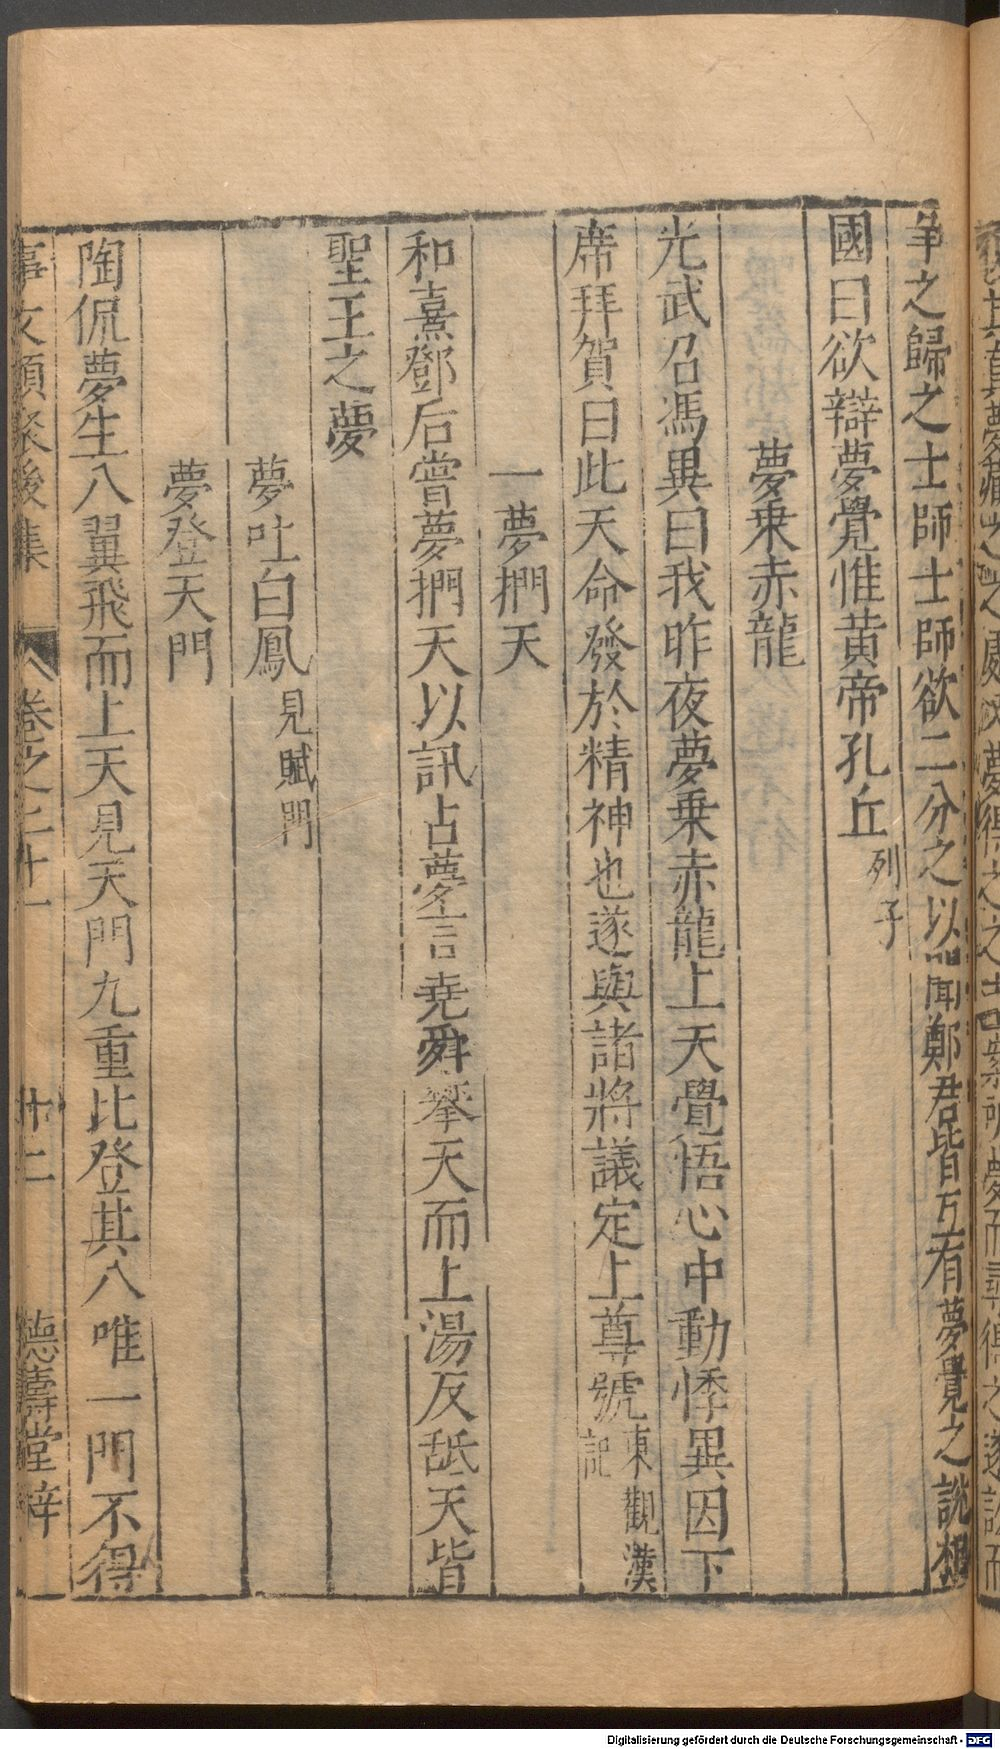 爭之歸之士師士師欲二分之以聞鄭君皆互有夢覺之說想
國曰欲辯夢覺惟黃帝孔丘列子
夢乗赤龍
光武召馮異曰我昨夜夢乗赤龍上天覺悟心中動悸異因下
席拜賀曰此天命發於精神也遂與諸將議定上尊號東觀漢記
一夢捫天
和熹鄧后嘗夢捫天以訊占夢言堯舜攀天而上湯反舐天皆
聖王之夢
夢吐白鳳見賦門
夢登天門
陶侃夢生八翼飛而上天見天門九重比登其八唯一門不得
事文類聚後集 卷之二十一 廿二 德壽堂梓
Digitalisierung gefördert durch die Deutsche Forschungsgemeinschaft - DFG